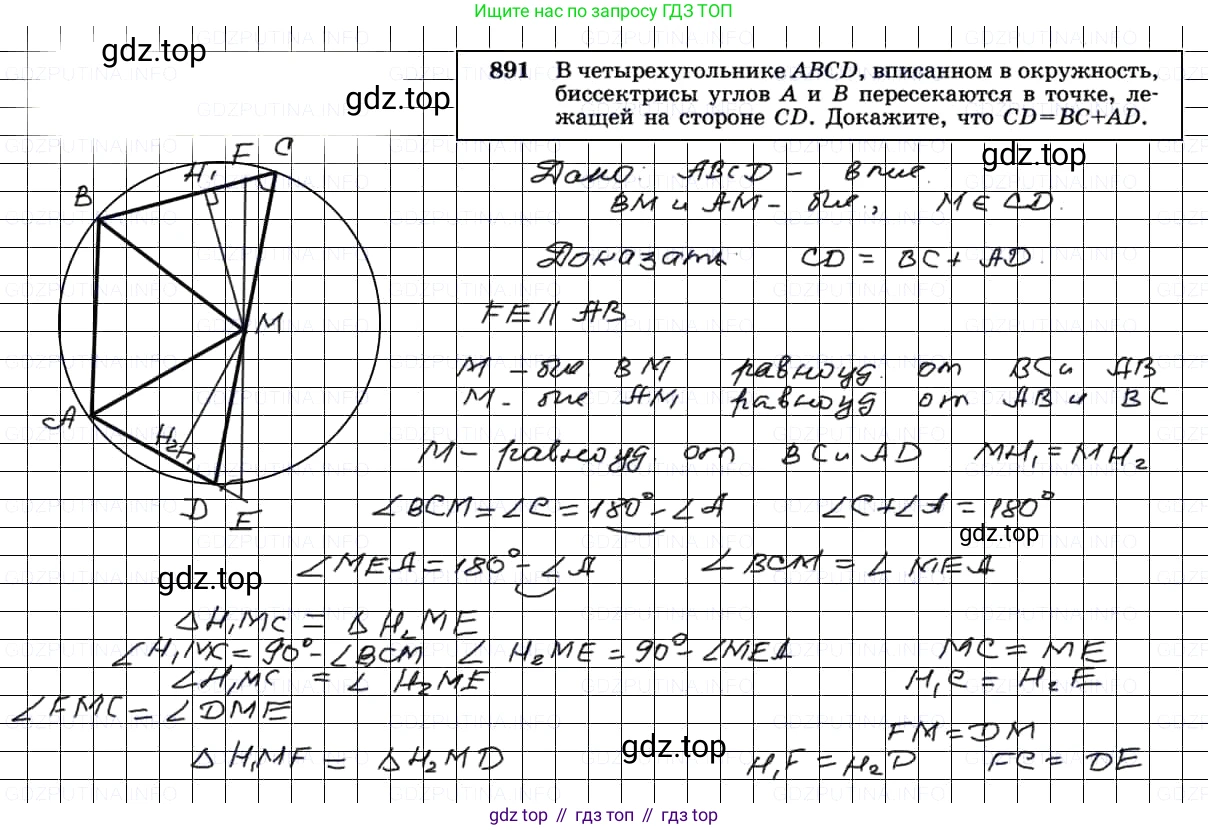 Ищите нас по запросу ГДЗ ТОП
gdz.top
gdz.top
891 В четырехугольнике ABCD, вписанном в окружность,
биссектрисы углов A и B пересекаются в точке, ле-
жащей на стороне CD. Докажите, что CD=BC+AD.
gdz.top
Дано: ABCD - впис.
BM и AM - бис., M ∈ CD.
Доказать CD = BC + AD.
FE || AB
M - бис. BM равноуд. от BC и AB
M - бис AM равноуд от AB и BC
M - равноуд от BC и AD MH₁ = MH₂
∠BCM = ∠C = 180° - ∠A ∠C + ∠A = 180°
gdz.top
∠MEA = 180° - ∠A ∠BCM = ∠MEA
gdz.top
△H₁MC = △H₂ME
∠H₁MC = 90° - ∠BCM ∠H₂ME = 90° - ∠MEA MC = ME
∠H₁MC = ∠H₂ME H₁C = H₂E
∠FMC = ∠DME
FM = DM
△H₁MF = △H₂MD gdz.top H₁F = H₂D FC = DE
B H₁ F C
M
A H₂
D E
gdz.top // гдз топ // gdz top